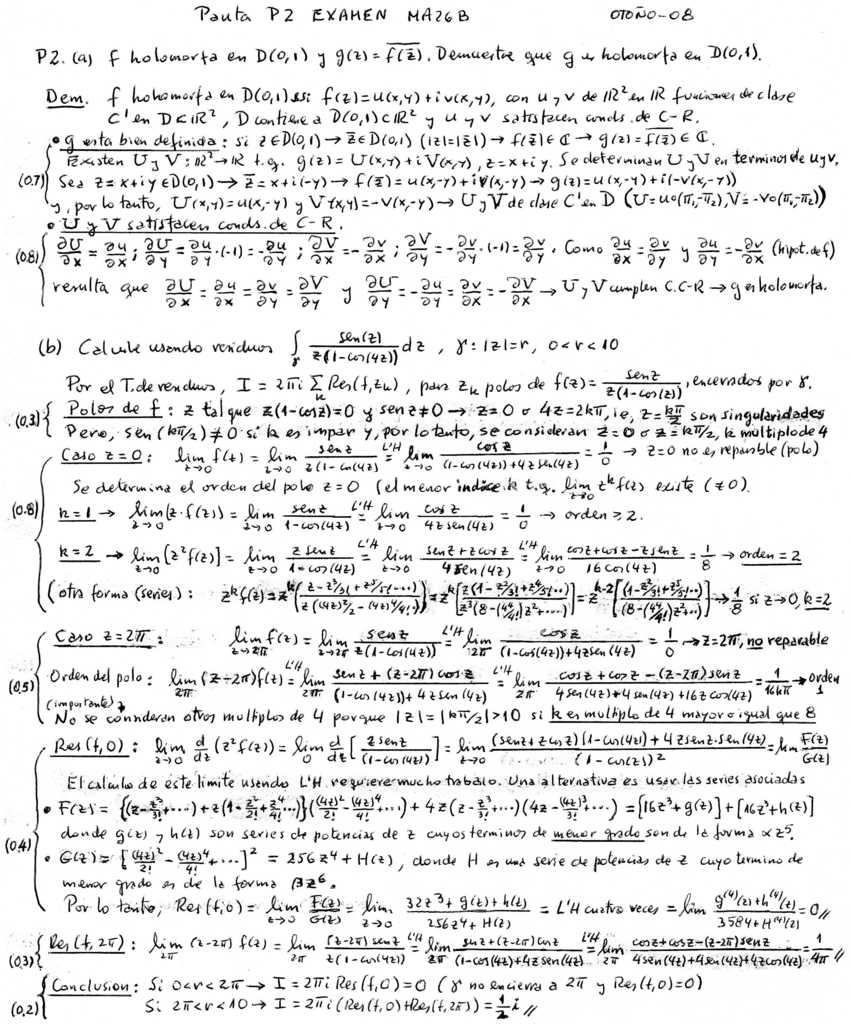 Pauta P2 EXAMEN MA26B OTOÑO-08
P2. (a) f holomorfa en D(0,1) y g(z) = \overline{f(\bar{z})}. Demuestre que g es holomorfa en D(0,1).
Dem. f holomorfa en D(0,1) ssi f(z) = u(x,y) + i v(x,y), con u y v de ℝ² en ℝ funciones de clase
C¹ en D ⊂ ℝ², D contiene a D(0,1) ⊂ ℝ² y u y v satisfacen conds. de C-R.
• g esta bien definida: si z ∈ D(0,1) → \bar{z} ∈ D(0,1) (|z| = |\bar{z}|) → f(\bar{z}) ∈ ℂ → g(z) = \overline{f(\bar{z})} ∈ ℂ.
Existen U y V: ℝ² → ℝ t.q. g(z) = U(x,y) + i V(x,y), z = x + iy. Se determinan U y V en terminos de u y v.
(0.7) Sea z = x + iy ∈ D(0,1) → \bar{z} = x + i(-y) → f(\bar{z}) = u(x,-y) + i v(x,-y) → g(z) = u(x,-y) + i(-v(x,-y))
y, por lo tanto, U(x,y) = u(x,-y) y V(x,y) = -v(x,-y) → U y V de clase C¹ en D (U = u∘(π₁,-π₂), V = -v∘(π₁,-π₂))
• U y V satisfacen conds. de C-R.
(0.8) ∂U/∂x = ∂u/∂x ; ∂U/∂y = ∂u/∂y·(-1) = -∂u/∂y ; ∂V/∂x = -∂v/∂x ; ∂V/∂y = -∂v/∂y·(-1) = ∂v/∂y. Como ∂u/∂x = ∂v/∂y y ∂u/∂y = -∂v/∂x (hipot. de f)
resulta que ∂U/∂x = ∂u/∂x = ∂v/∂y = ∂V/∂y y ∂U/∂y = -∂u/∂y = ∂v/∂x = -∂V/∂x → U y V cumplen C.C-R → g es holomorfa.
(b) Calcule usando residuos ∫_γ sen(z)/(z(1-cos(4z))) dz, γ: |z| = r, 0 < r < 10
Por el T. de residuos, I = 2πi Σ_k Res(f, z_k), para z_k polos de f(z) = sen z/(z(1-cos(4z))), encerrados por γ.
(0.3) Polos de f: z tal que z(1-cos4z) = 0 y sen z ≠ 0 → z = 0 o 4z = 2kπ, ie, z = kπ/2 son singularidades
Pero, sen(kπ/2) ≠ 0 si k es impar y, por lo tanto, se consideran z = 0 o z = kπ/2, k multiplo de 4
Caso z = 0: lim_{z→0} f(z) = lim_{z→0} sen z/(z(1-cos(4z))) =^{L'H} lim_{z→0} cos z/((1-cos(4z)) + 4z sen(4z)) = 1/0 → z = 0 no es reparable (polo)
Se determina el orden del polo z = 0 (el menor indice k t.q. lim_{z→0} z^k f(z) existe (≠ 0).
(0.8) k = 1 → lim_{z→0} (z·f(z)) = lim_{z→0} sen z/(1-cos(4z)) =^{L'H} lim_{z→0} cos z/(4 sen(4z)) = 1/0 → orden ≥ 2.
k = 2 → lim_{z→0} [z² f(z)] = lim_{z→0} z sen z/(1-cos(4z)) =^{L'H} lim_{z→0} (sen z + z cos z)/(4 sen(4z)) =^{L'H} lim_{z→0} (cos z + cos z - z sen z)/(16 cos(4z)) = 1/8 → orden = 2
(otra forma (series): z^k f(z) = z^k((z - z³/3! + z⁵/5! ...)/(z((4z)²/2 - (4z)⁴/4! ...))) = z^k[z(1 - z²/3! + z⁴/5! ...)/(z³(8 - (4⁴/4!)z² + ...))] = z^{k-2}[(1 - z²/3! + z⁴/5! ...)/(8 - (4⁴/4!)z² + ...)] → 1/8 si z → 0, k = 2
Caso z = 2π: lim_{z→2π} f(z) = lim_{z→2π} sen z/(z(1-cos(4z))) =^{L'H} lim_{2π} cos z/((1-cos(4z)) + 4z sen(4z)) = 1/0 → z = 2π, no reparable
(0.5) Orden del polo: lim_{2π} (z-2π) f(z) =^{L'H} lim_{2π} (sen z + (z-2π) cos z)/((1-cos(4z)) + 4z sen(4z)) =^{L'H} lim_{2π} (cos z + cos z - (z-2π) sen z)/(4 sen(4z) + 4 sen(4z) + 16z cos(4z)) = 1/16π → orden 1
(importante)
No se consideran otros multiplos de 4 porque |z| = |kπ/2| > 10 si k es multiplo de 4 mayor o igual que 8
Res(f,0): lim_{z→0} d/dz (z² f(z)) = lim_0 d/dz [z sen z/(1-cos(4z))] = lim_{z→0} ((sen z + z cos z)(1-cos(4z)) + 4z sen z·sen(4z))/(1-cos(z))² = lim F(z)/G(z)
El calculo de este limite usando L'H requiere mucho trabajo. Una alternativa es usar las series asociadas
• F(z) = {(z - z³/3! + ...) + z(1 - z²/2! + z⁴/4! ...)}((4z)²/2! - (4z)⁴/4! + ...) + 4z(z - z³/3! + ...)(4z - (4z)³/3! + ...) = [16z³ + g(z)] + [16z³ + h(z)]
donde g(z) y h(z) son series de potencias de z cuyos terminos de menor grado son de la forma αz⁵.
(0.4) • G(z) = [(4z)²/2! - (4z)⁴/4! + ...]² = 256z⁴ + H(z), donde H es una serie de potencias de z cuyo termino de
menor grado es de la forma βz⁶.
Por lo tanto, Res(f,0) = lim_{z→0} F(z)/G(z) = lim_{z→0} (32z³ + g(z) + h(z))/(256z⁴ + H(z)) = L'H cuatro veces = lim (g⁽⁴⁾(z) + h⁽⁴⁾(z))/(3584 + H⁽⁴⁾(z)) = 0 //
(0.3) Res(f,2π): lim_{2π} (z-2π) f(z) = lim_{2π} (z-2π) sen z/(z(1-cos(4z))) =^{L'H} lim_{2π} (sen z + (z-2π) cos z)/((1-cos(4z) + 4z sen(4z)) =^{L'H} lim_{2π} (cos z + cos z - (z-2π) sen z)/(4 sen(4z) + 4 sen(4z) + 4z cos(4z)) = 1/4π //
(0.2) Conclusion: Si 0 < r < 2π → I = 2πi Res(f,0) = 0 (γ no encierra a 2π y Res(f,0) = 0)
Si 2π < r < 10 → I = 2πi (Res(f,0) + Res(f,2π)) = 1/2 i //